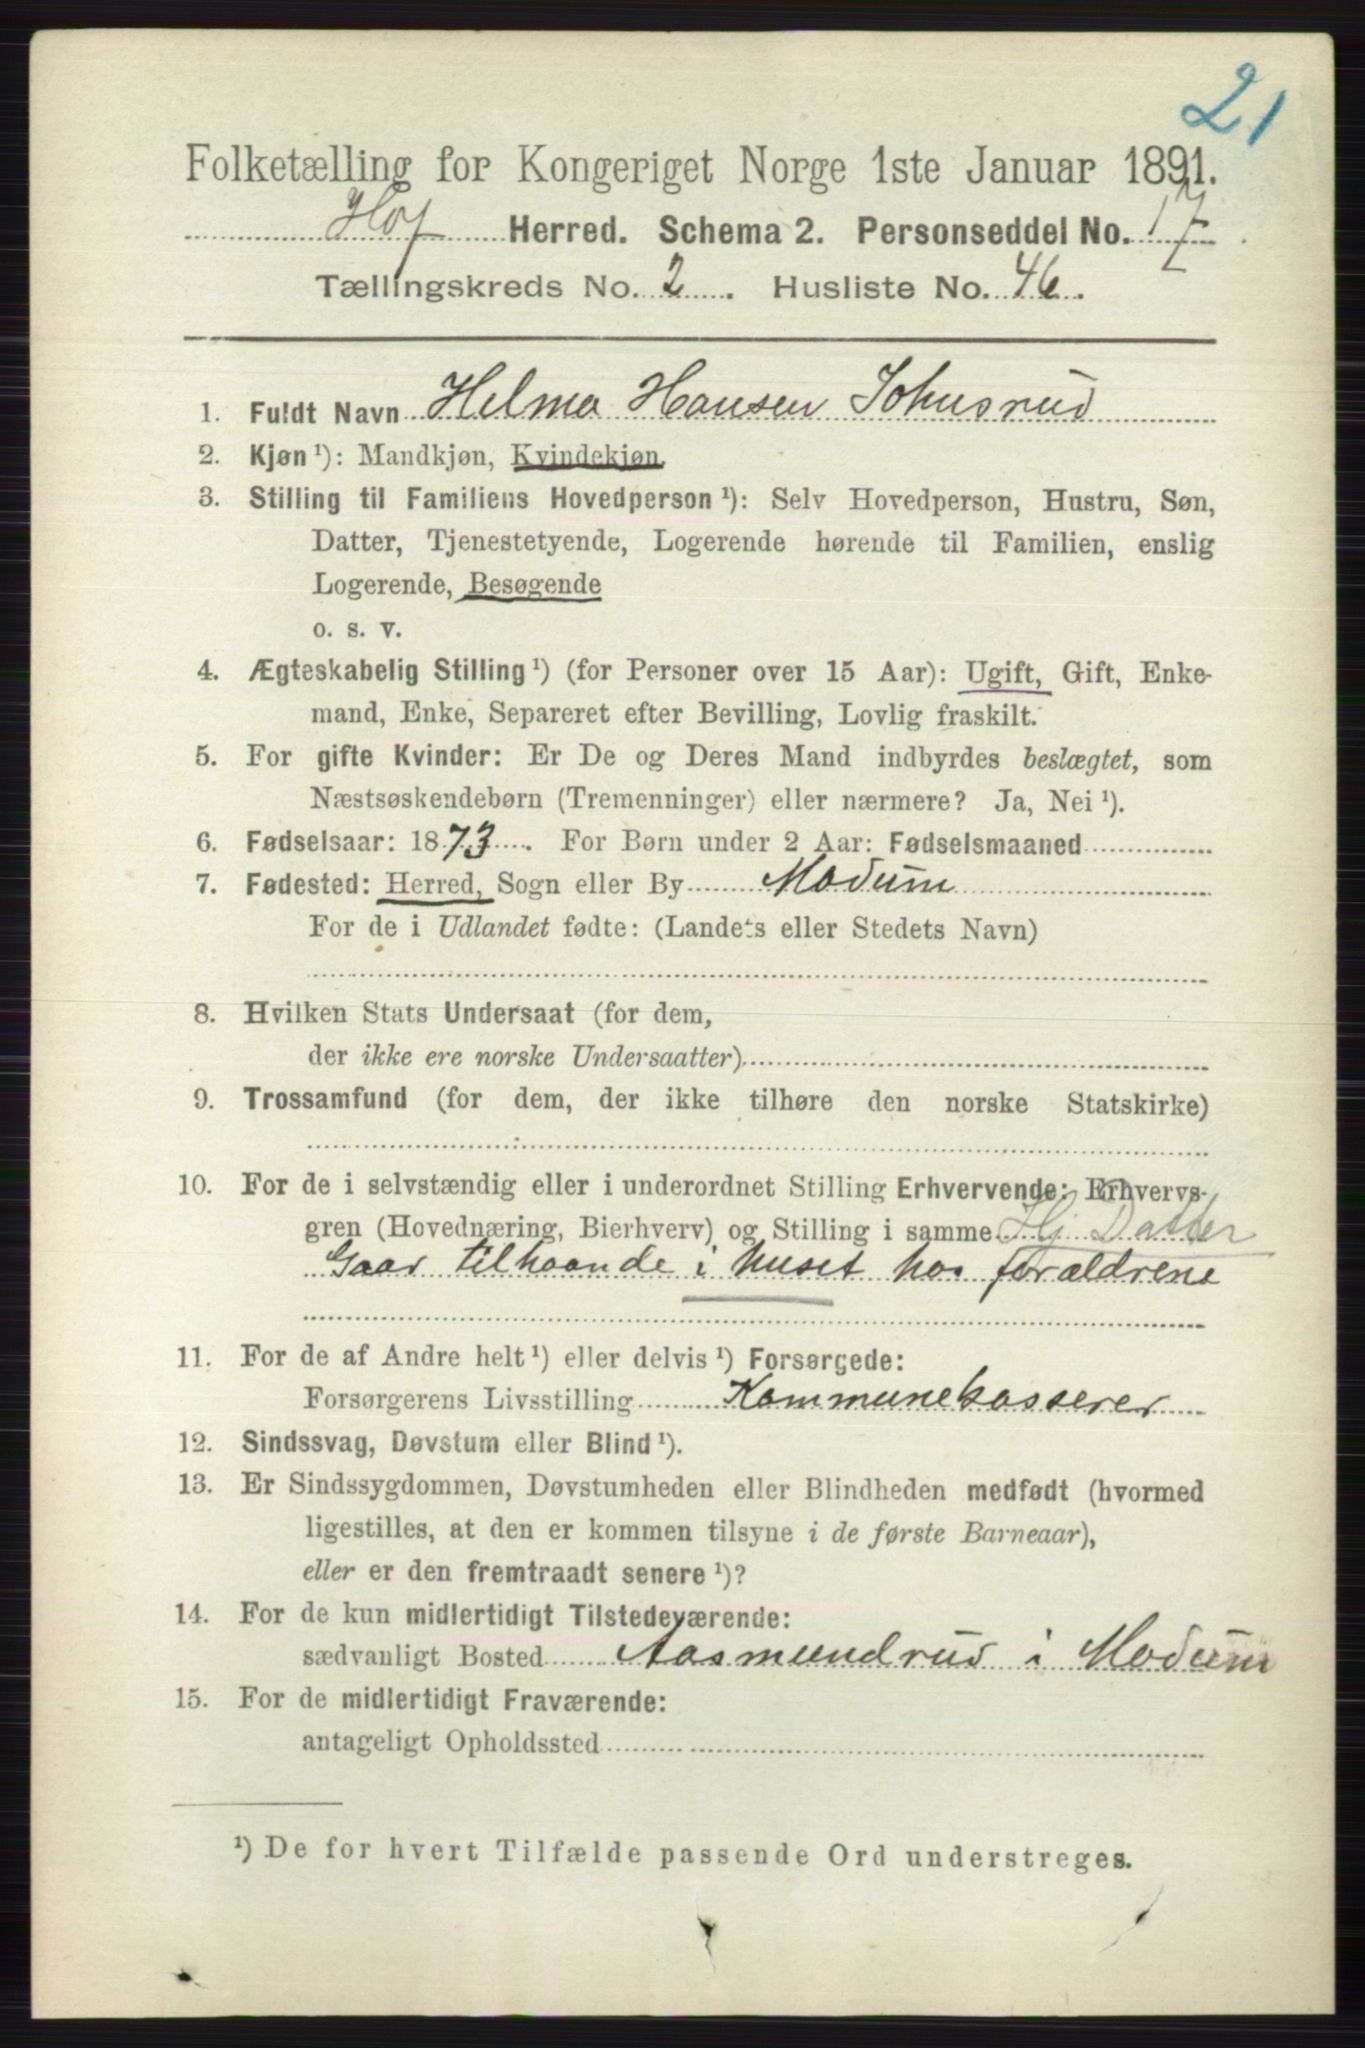 21
Folketælling for Kongeriget Norge 1ste Januar 1891.
Hof Herred. Schema 2. Personseddel No. 17
Tællingskreds No. 2. Husliste No. 46.
1. Fuldt Navn Helma Hansen Johnsrud
2. Kjøn ¹): Mandkjøn, Kvindekjøn.
3. Stilling til Familiens Hovedperson ¹): Selv Hovedperson, Hustru, Søn,
Datter, Tjenestetyende, Logerende hørende til Familien, enslig
Logerende, Besøgende
o. s. v.
4. Ægteskabelig Stilling ¹) (for Personer over 15 Aar): Ugift, Gift, Enke-
mand, Enke, Separeret efter Bevilling, Lovlig fraskilt.
5. For gifte Kvinder: Er De og Deres Mand indbyrdes beslægtet, som
Næstsøskendebørn (Tremenninger) eller nærmere? Ja, Nei ¹).
6. Fødselsaar: 1873. For Børn under 2 Aar: Fødselsmaaned
7. Fødested: Herred, Sogn eller By Modum
For de i Udlandet fødte: (Landets eller Stedets Navn)
8. Hvilken Stats Undersaat (for dem,
der ikke ere norske Undersaatter)
9. Trossamfund (for dem, der ikke tilhøre den norske Statskirke)
10. For de i selvstændig eller i underordnet Stilling Erhvervende: Erhvervs-
gren (Hovednæring, Bierhverv) og Stilling i samme Hj Datter
Gaar tilhaande i huset hos forældrene
11. For de af Andre helt ¹) eller delvis ¹) Forsørgede:
Forsørgerens Livsstilling Kommunekasserer
12. Sindssvag, Døvstum eller Blind ¹).
13. Er Sindssygdommen, Døvstumheden eller Blindheden medfødt (hvormed
ligestilles, at den er kommen tilsyne i de første Barneaar),
eller er den fremtraadt senere ¹)?
14. For de kun midlertidigt Tilstedeværende:
sædvanligt Bosted Aasmundrud i Modum
15. For de midlertidigt Fraværende:
antageligt Opholdssted
¹) De for hvert Tilfælde passende Ord understreges.